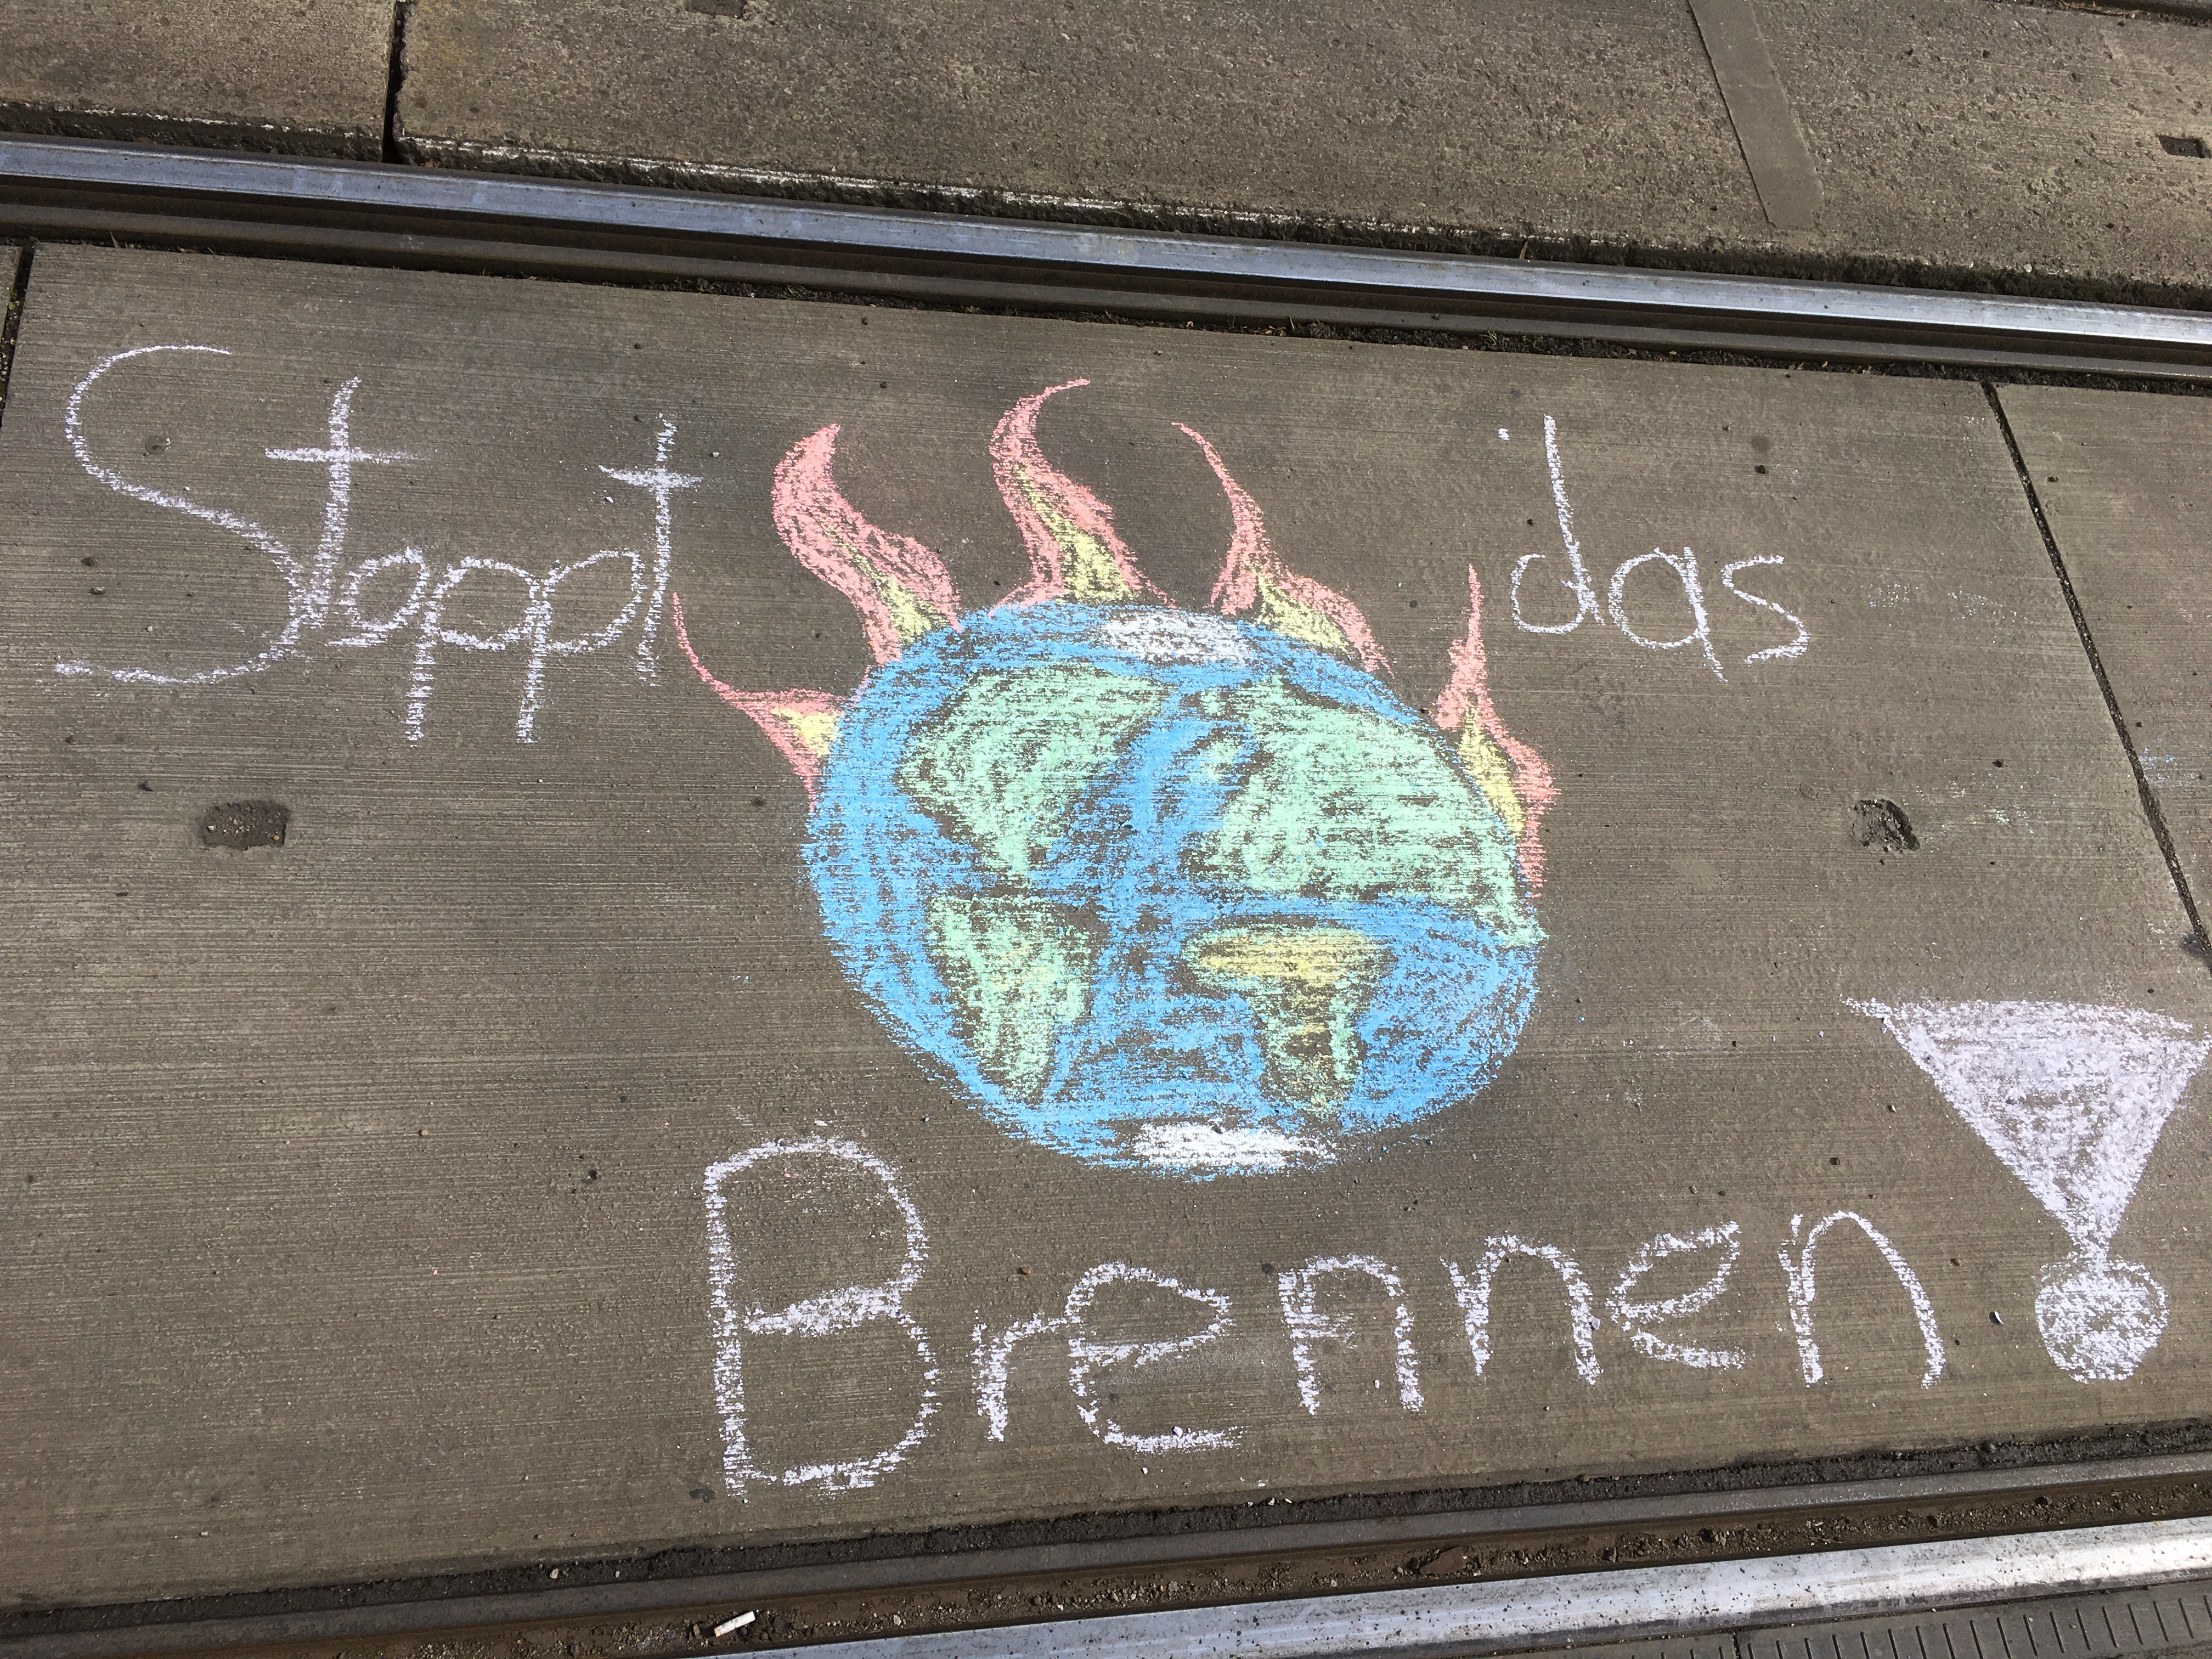 Stoppt das
Brennen!